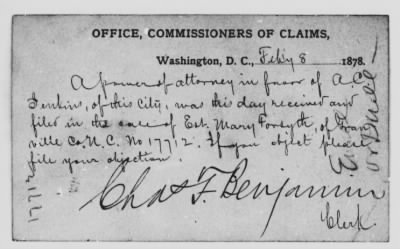 OFFICE, COMMISSIONERS OF CLAIMS,
Washington, D. C., Feby 8 1878.
A power of attorney in favor of A.C.
Jenkins, of this City, was this day received and
filed in the case of Est. Mary Forsyth, of Gran
ville Co. N.C. No 17712. If you object please
file your objection.
Chas F. Benjamin
Clerk.
17712